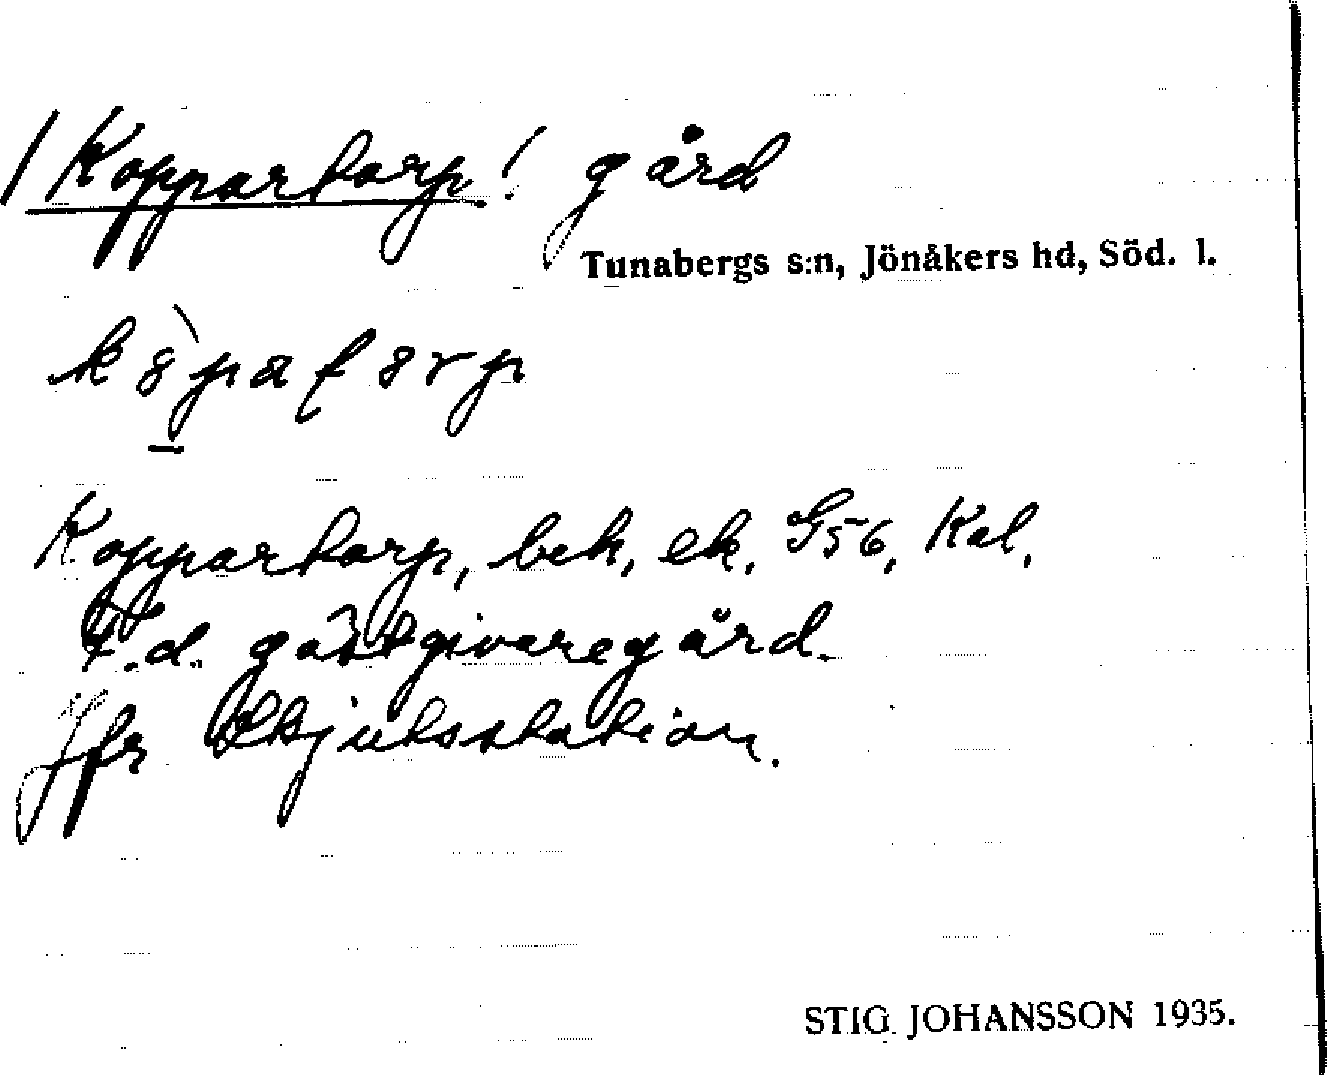 /Koppartorp/ gård
Tunabergs s:n, Jönåkers hd, Söd. l.
Koppartorp, beh, ek. G56, Kal.
F.d. gästgivaregård.
Jfr Skjutsstation.
STIG JOHANSSON 1935.